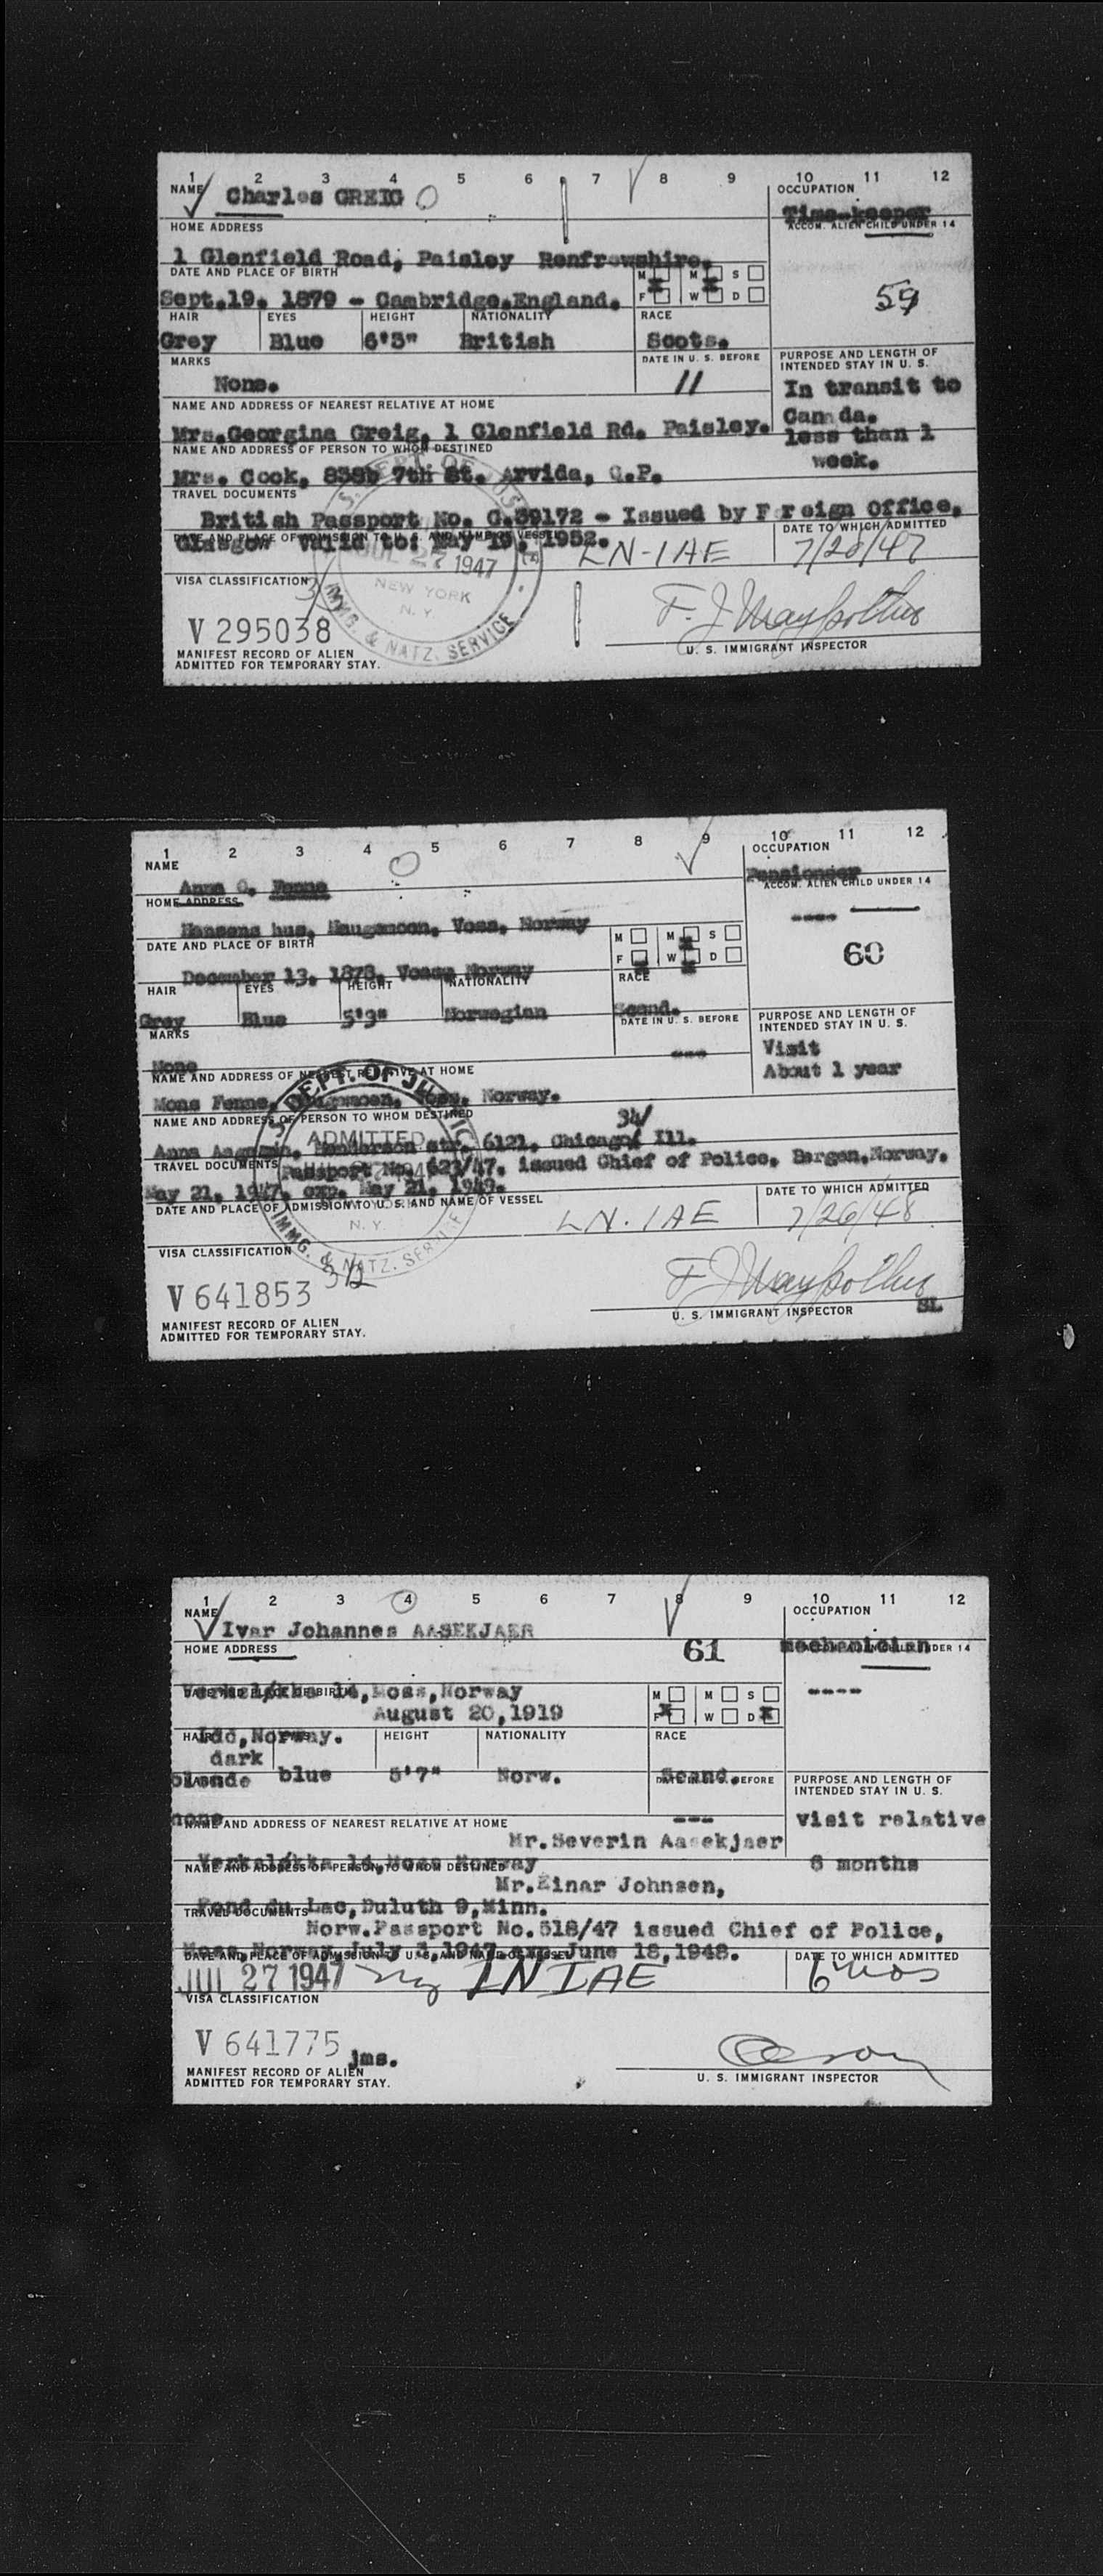 1 2 3 4 5 6 7 8 9 10 11 12
NAME Charles GREIG
OCCUPATION
Time-keeper
ACCOM. ALIEN CHILD UNDER 14
HOME ADDRESS
1 Glenfield Road, Paisley Renfrewshire.
DATE AND PLACE OF BIRTH
M M S
Sept.19. 1879 - Cambridge.England.
F W D
59
HAIR EYES HEIGHT NATIONALITY RACE
Grey Blue British Scots.
MARKS
DATE IN U. S. BEFORE
PURPOSE AND LENGTH OF
INTENDED STAY IN U. S.
None.
In transit to
Canada.
less than 1
week.
NAME AND ADDRESS OF NEAREST RELATIVE AT HOME
Mrs.Georgina Greig, 1 Glenfield Rd. Paisley.
NAME AND ADDRESS OF PERSON TO WHOM DESTINED
Mrs. Cook, 7th St. Arvida, Q.P.
TRAVEL DOCUMENTS
British Passport No. G.39172 - Issued by F reign Office,
DATE AND PLACE OF ADMISSION TO U. S. AND NAME OF VESSEL
Glasgow Valid to: May 1952.
1947
LN-IAE
DATE TO WHICH ADMITTED
NEW YORK
N. Y.
IMMG. & NATZ. SERVICE
VISA CLASSIFICATION
V 295038
MANIFEST RECORD OF ALIEN
ADMITTED FOR TEMPORARY STAY.
U. S. IMMIGRANT INSPECTOR
1 2 3 4 5 6 7 8 9 10 11 12
NAME
OCCUPATION
Anna O. Fenne
Pensioner
ACCOM. ALIEN CHILD UNDER 14
HOME ADDRESS
Hansens hus, Voss, Norway
----
DATE AND PLACE OF BIRTH
M M S
F W D
60
December 13, 1878, Norway
HAIR EYES HEIGHT NATIONALITY RACE
Grey Blue 5'3" Norwegian Scand.
MARKS
DATE IN U. S. BEFORE
---
PURPOSE AND LENGTH OF
INTENDED STAY IN U. S.
Visit
About 1 year
None
NAME AND ADDRESS OF NEAREST RELATIVE AT HOME
Mons Fenne, Norway.
NAME AND ADDRESS OF PERSON TO WHOM DESTINED
34/
Anna Henderson str. 6121, Chicago, Ill.
TRAVEL DOCUMENTS
Passport No. 623/47, issued Chief of Police, Bergen,Norway.
May 21, 1947, exp. May 21, 1949.
DATE AND PLACE OF ADMISSION TO U. S. AND NAME OF VESSEL
DEPT. OF JUSTICE
ADMITTED
N. Y.
IMMG. & NATZ. SERVICE
LN.IAE
DATE TO WHICH ADMITTED
7/26/48
VISA CLASSIFICATION
V 641853
MANIFEST RECORD OF ALIEN
ADMITTED FOR TEMPORARY STAY.
U. S. IMMIGRANT INSPECTOR
SL
1 2 3 4 5 6 7 8 9 10 11 12
NAME
OCCUPATION
Ivar Johannes AASEKJAER
HOME ADDRESS
61
mechanician
----
Moss,Norway
DATE AND PLACE OF BIRTH
August 20,1919
M M S
F W D
Idd,Norway.
HAIR HEIGHT NATIONALITY RACE
dark
blonde blue 5'7" Norw. Scand.
PURPOSE AND LENGTH OF
INTENDED STAY IN U. S.
none
---
visit relative
6 months
NAME AND ADDRESS OF NEAREST RELATIVE AT HOME
Mr.Severin Aasekjaer
Moss Norway
NAME AND ADDRESS OF PERSON TO WHOM DESTINED
Mr.Einar Johnsen,
Fond du Lac,Duluth 9,Minn.
TRAVEL DOCUMENTS
Norw.Passport No.518/47 issued Chief of Police,
Moss,Norway June 18,1948.
DATE AND PLACE OF ADMISSION TO U. S. AND NAME OF VESSEL
JUL 27 1947 ny LN IAE
DATE TO WHICH ADMITTED
6 mos
VISA CLASSIFICATION
V 641775 jms.
MANIFEST RECORD OF ALIEN
ADMITTED FOR TEMPORARY STAY.
U. S. IMMIGRANT INSPECTOR